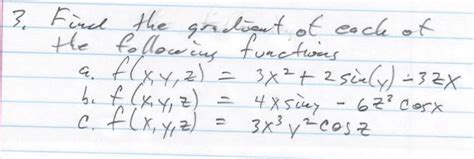 3. Find the gradient of each of
the following functions
a. f(x,y,z) = 3x² + 2 sin(y) - 3zx
b. f(x,y,z) = 4x siny - 6z² cosx
c. f(x,y,z) = 3x³ y² cosz